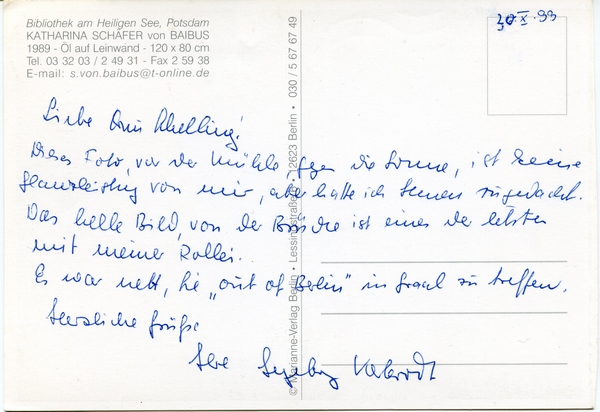 Bibliothek am Heiligen See, Potsdam
KATHARINA SCHÄFER von BAIBUS
1989 - Öl auf Leinwand - 120 x 80 cm
Tel. 03 32 03 / 2 49 31 - Fax 2 59 38
E-mail: s.von.baibus@t-online.de
30.X.99
Liebe
Dieses Foto, vor der Mühle gegen die Sonne, ist keine
Glanzleistung von mir, aber hatte ich Ihnen zugedacht.
Das helle Bild, von der Brücke ist eines der letzten
mit meiner Rollei.
Es war nett, Sie „out of Berlin" in Graal zu treffen.
Herzliche Grüße
Ihre Ingeborg
© Marianne-Verlag Berlin • Lessingstraße • 12623 Berlin • 030 / 5 67 67 49